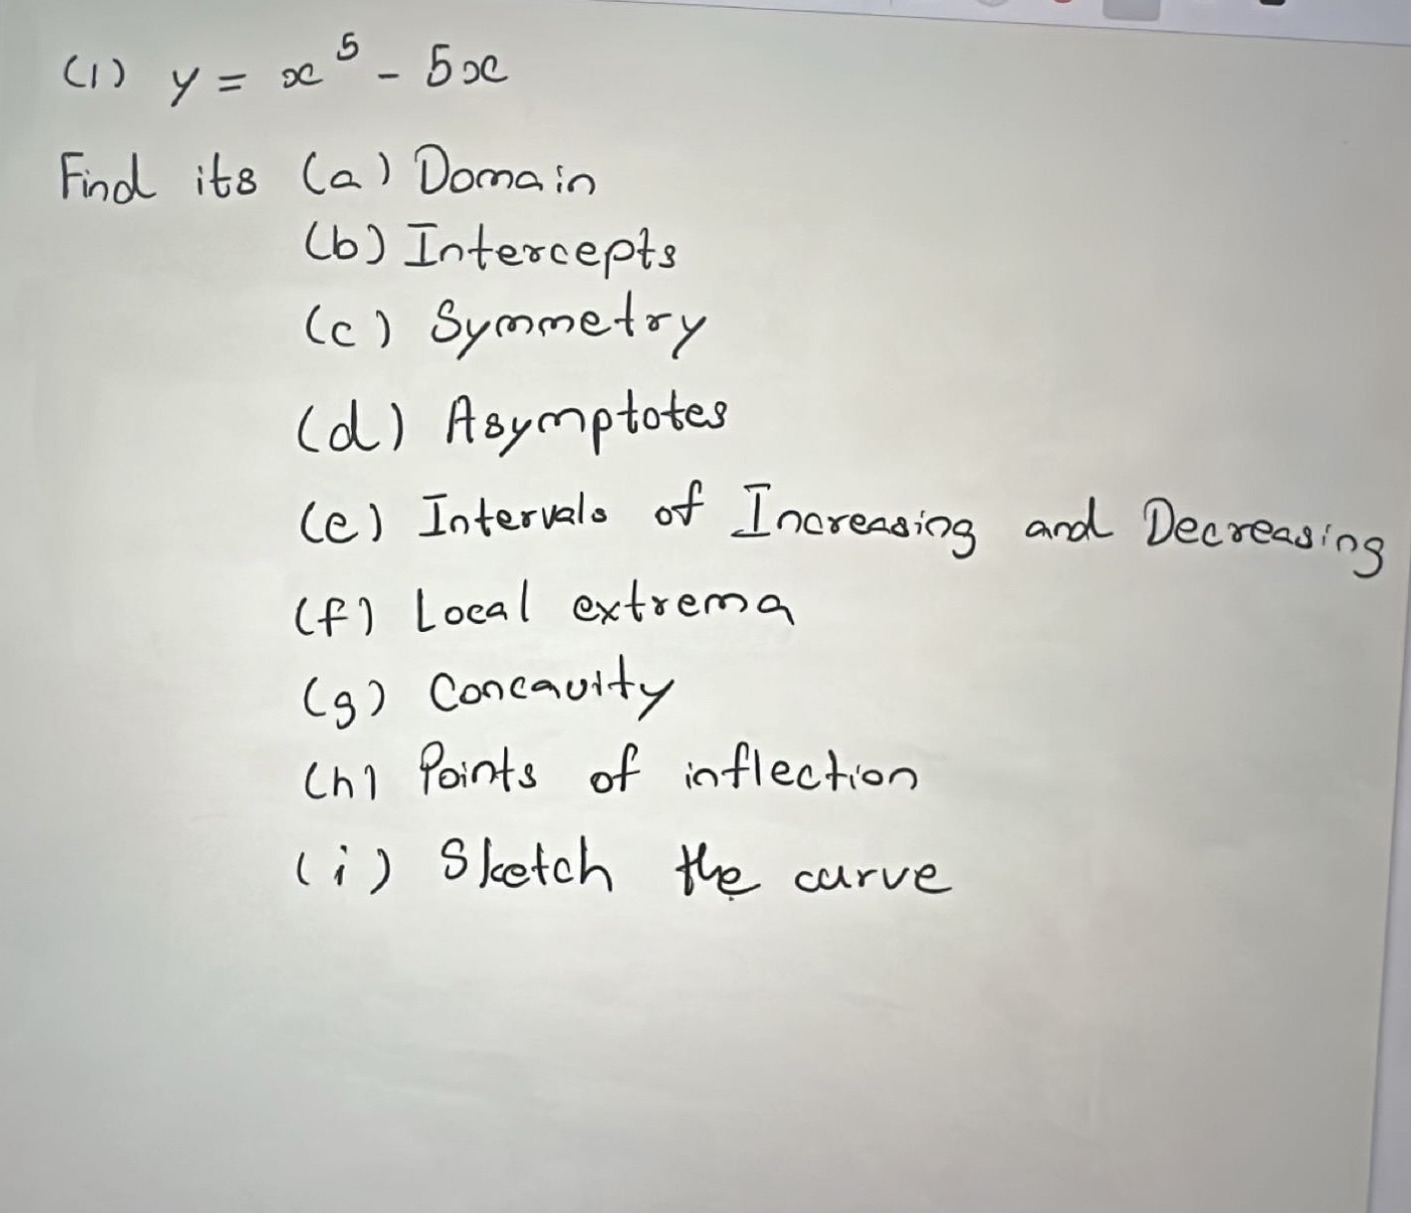 (1) y = x⁵ - 5x
Find its (a) Domain
(b) Intercepts
(c) Symmetry
(d) Asymptotes
(e) Intervals of Increasing and Decreasing
(f) Local extrema
(g) Concavity
(h) Points of inflection
(i) Sketch the curve